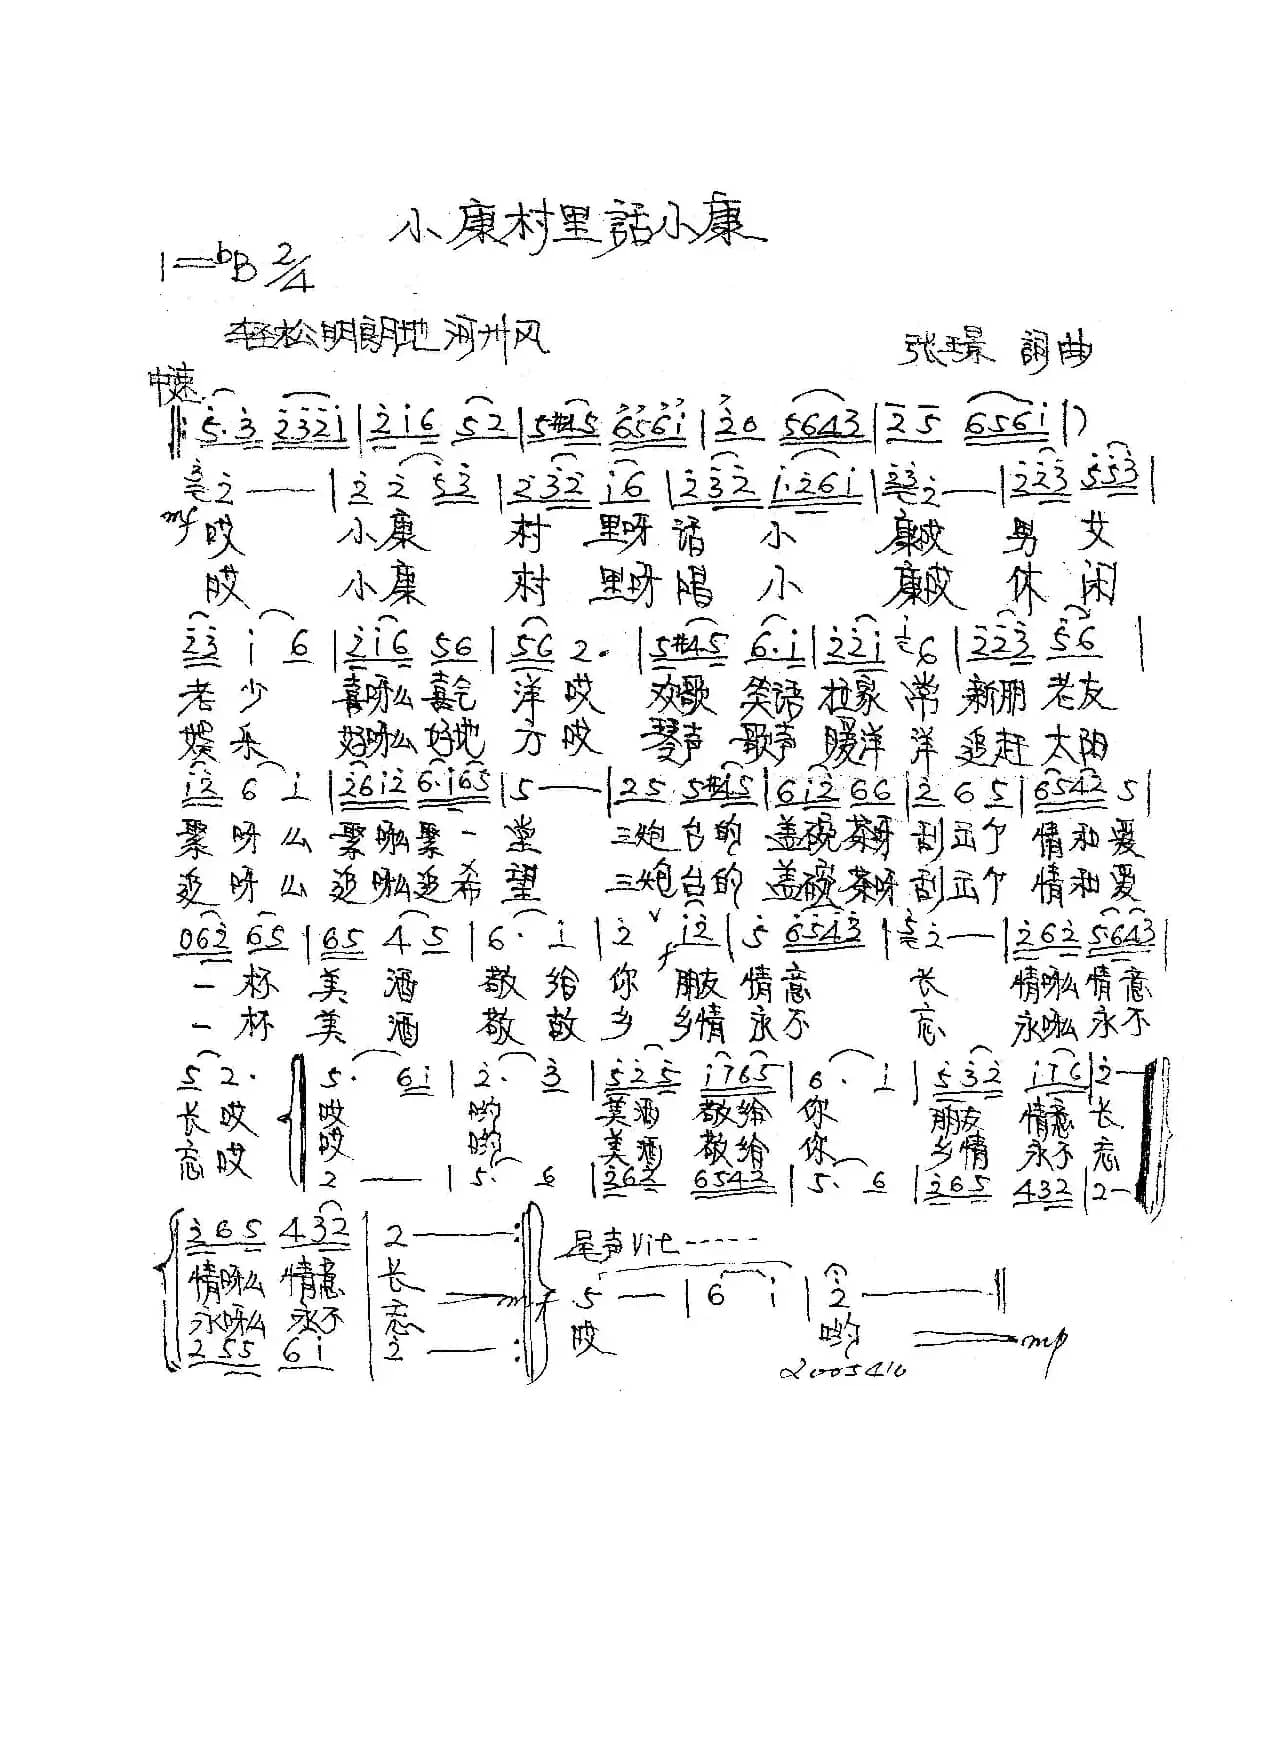 小康村里話小康
1=bB 2/4
轻松明朗地 河州风
张璟 詞曲
中速
5·3 2321 | 216 52 | 5#45 6561 | 20 5643 | 25 6561 |)
2 — — | 2 2 53 | 232 16 | 232 1·261 | 23 2 — | 223 553 |
mf 哎 小康 村 里呀 话 小 康哎 男 女
哎 小康 村 里呀 唱 小 康哎 休 闲
23 1 6 | 216 56 | 56 2· | 5#45 6·1 | 221 6 | 223 56 |
老 少 喜呀么喜气 洋 哎 欢歌 笑语 拉家 常 新朋 老友
娱 乐 好呀么好地 方 哎 琴声 歌声 暖洋 洋 追赶 太阳
12 6 1 | 2612 6·165 | 5 — — | 25 5#45 | 612 66 | 2 6 5 | 6542 5 |
聚 呀 么 聚呀么聚 一 堂 三炮 台的 盖碗 茶呀 刮出个 情和爱
追 呀 么 追呀么追 希 望 三炮 台的 盖碗 茶呀 刮出个 情和爱
062 65 | 65 4 5 | 6· 1 | 2 v 12 | 5 6543 | 2 — | 262 5643 |
f
一 杯 美 酒 敬 给 你 朋友 情 意 长 情呀么情意
一 杯 美 酒 敬 故 乡 乡情 永 不 忘 永呀么永不
5 2· 5· 61 | 2· 3 | 525 1765 | 6· 1 | 532 176 | 2 —
长 哎 哎 哟 美酒 敬给 你 朋友 情意 长
忘 哎 哎 哟 美酒 敬给 你 乡情 永不 忘
2 — — | 5· 6 | 262 6542 | 5· 6 | 265 432 | 2 —
265 432 | 2 — — :
尾声 Vit ------
情呀么 情意 长
5 — | 6 1 | 2 — — ‖
永呀么 永不 忘 mf
哎 哟 mp
255 61 | 2 — — :
2005410